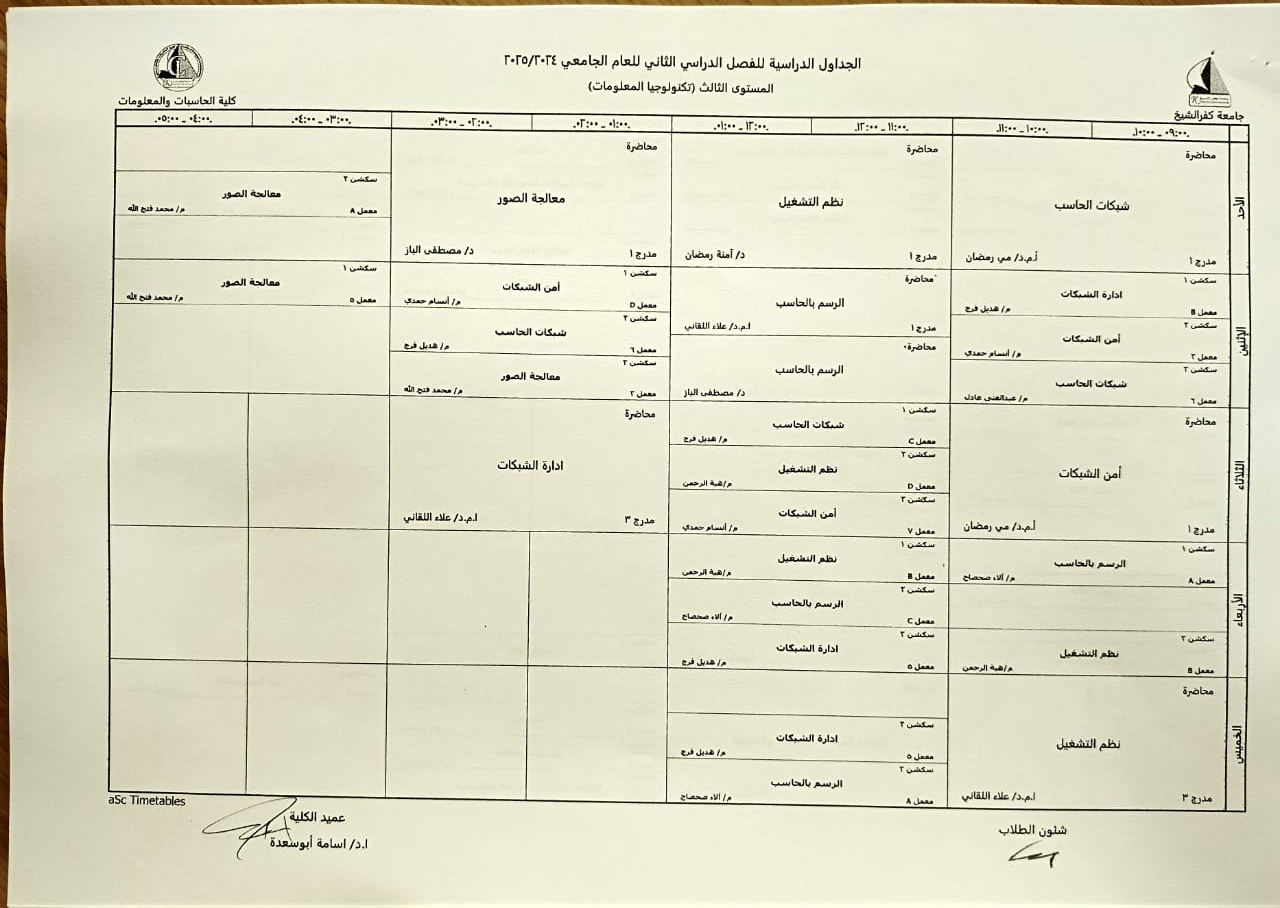 الجداول الدراسية للفصل الدراسي الثاني للعام الجامعي ٢٠٢٥/٢٠٢٤
المستوى الثالث (تكنولوجيا المعلومات)
جامعة كفرالشيخ
كلية الحاسبات والمعلومات
٠٩:٠٠ - ١٠:٠٠
١٠:٠٠ - ١١:٠٠
١١:٠٠ - ١٢:٠٠
١٢:٠٠ - ٠١:٠٠
٠١:٠٠ - ٠٢:٠٠
٠٢:٠٠ - ٠٣:٠٠
٠٣:٠٠ - ٠٤:٠٠
٠٤:٠٠ - ٠٥:٠٠
الأحد
محاضرة
شبكات الحاسب
مدرج ١ أ.م.د/ مي رمضان
محاضرة
نظم التشغيل
مدرج ١ د/ آمنة رمضان
محاضرة
معالجة الصور
مدرج ١ د/ مصطفى الباز
سكشن ٢
معالجة الصور
معمل ٨ م/ محمد فتح الله
الإثنين
سكشن ١
ادارة الشبكات
معمل B م/ هديل فرج
سكشن ٢
أمن الشبكات
معمل ٢ م/ أنسام حمدي
سكشن ٣
شبكات الحاسب
معمل ٦ م/ عبدالغنى عادل
محاضرة
الرسم بالحاسب
مدرج ١ ا.م.د/ علاء اللقاني
محاضرة
الرسم بالحاسب
د/ مصطفى الباز
سكشن ١
أمن الشبكات
معمل D م/ أنسام حمدي
سكشن ٢
شبكات الحاسب
معمل ٦ م/ هديل فرج
سكشن ٣
معالجة الصور
معمل ٢ م/ محمد فتح الله
سكشن ١
معالجة الصور
معمل ٥ م/ محمد فتح الله
الثلاثاء
محاضرة
أمن الشبكات
مدرج ١ أ.م.د/ مي رمضان
سكشن ١
شبكات الحاسب
معمل C م/ هديل فرج
سكشن ٢
نظم التشغيل
معمل D م/هبة الرحمن
سكشن ٣
أمن الشبكات
معمل ٧ م/ أنسام حمدي
محاضرة
ادارة الشبكات
مدرج ٣ ا.م.د/ علاء اللقاني
الأربعاء
سكشن ١
الرسم بالحاسب
معمل ٨ م/ آلاء صحصاح
سكشن ٣
نظم التشغيل
معمل B م/هبة الرحمن
سكشن ١
نظم التشغيل
معمل B م/هبة الرحمن
سكشن ٢
الرسم بالحاسب
معمل C م/ آلاء صحصاح
سكشن ٣
ادارة الشبكات
معمل ٥ م/ هديل فرج
الخميس
محاضرة
نظم التشغيل
مدرج ٣ ا.م.د/ علاء اللقاني
سكشن ٢
ادارة الشبكات
معمل ٥ م/ هديل فرج
سكشن ٣
الرسم بالحاسب
معمل ٨ م/ آلاء صحصاح
aSc Timetables
شئون الطلاب
عميد الكلية
ا.د/ اسامة أبوسعدة